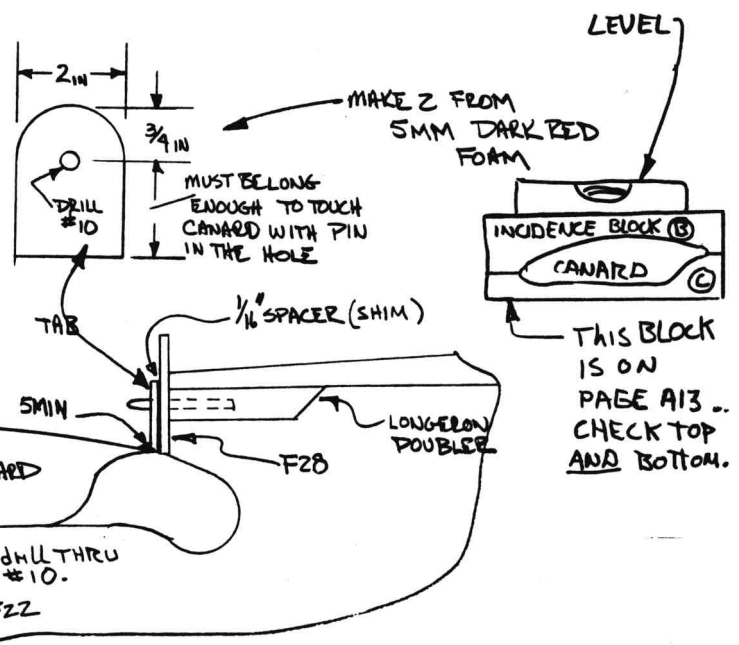 LEVEL
2 IN
3/4 IN
MAKE 2 FROM
5MM DARK RED
FOAM
DRILL
#10
MUST BE LONG
ENOUGH TO TOUCH
CANARD WITH PIN
IN THE HOLE
INCIDENCE BLOCK B
CANARD
C
TAB
1/16" SPACER (SHIM)
THIS BLOCK
IS ON
PAGE A13 ..
CHECK TOP
AND BOTTOM.
5MIN
LONGERON
DOUBLER
F28
ARD
drill THRU
#10.
F22